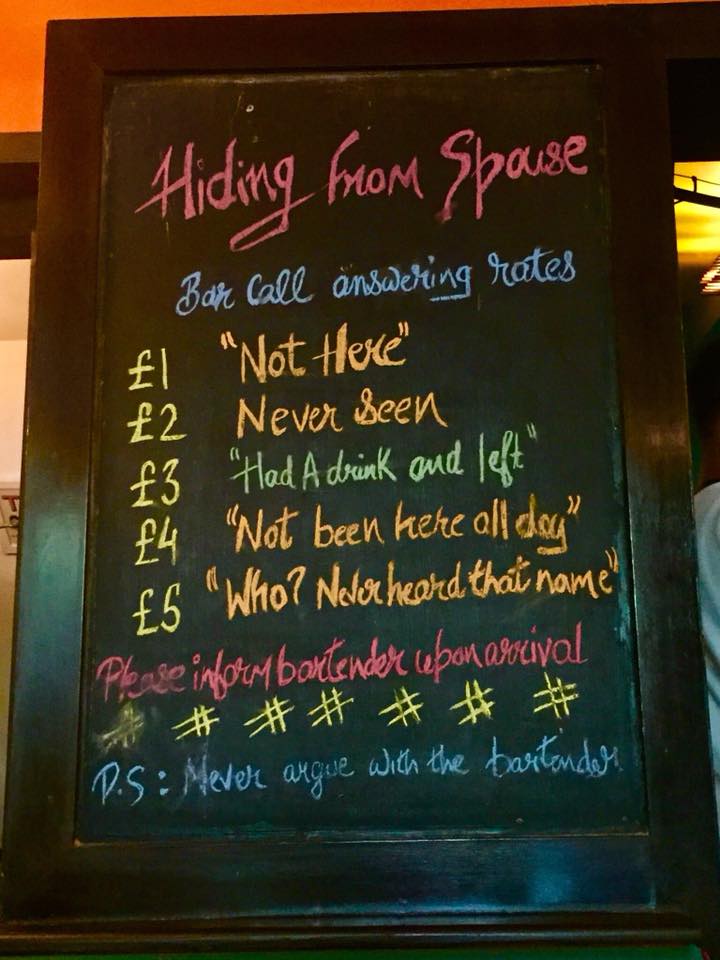 Hiding from Spouse
Bar Call answering rates
£1 "Not Here"
£2 Never seen
£3 "Had A drink and left"
£4 "Not been here all day"
£5 "Who? Never heard that name"
Please inform bartender upon arrival
# # # # # # #
P.S : Never argue with the bartender